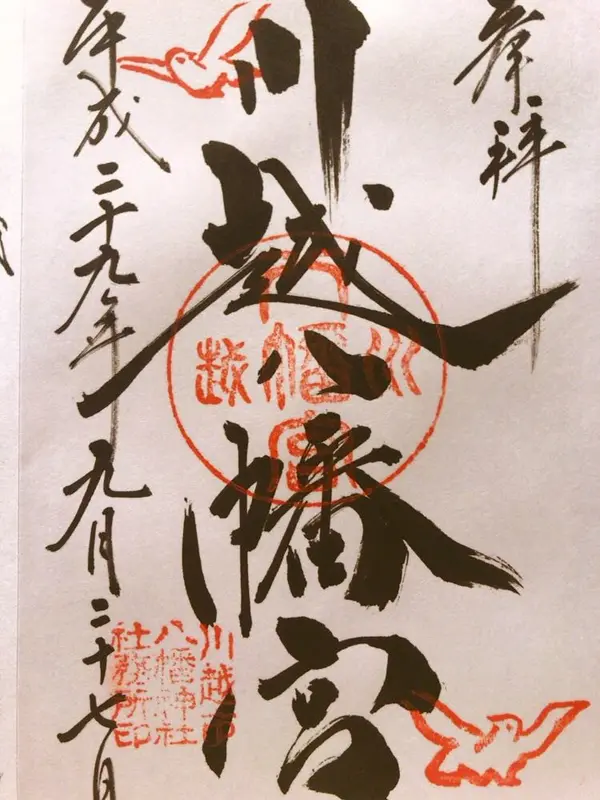 奉拝
川越八幡宮
平成二十九年九月二十七日
川
八幡宮
越
川越市
八幡神社
社務所印